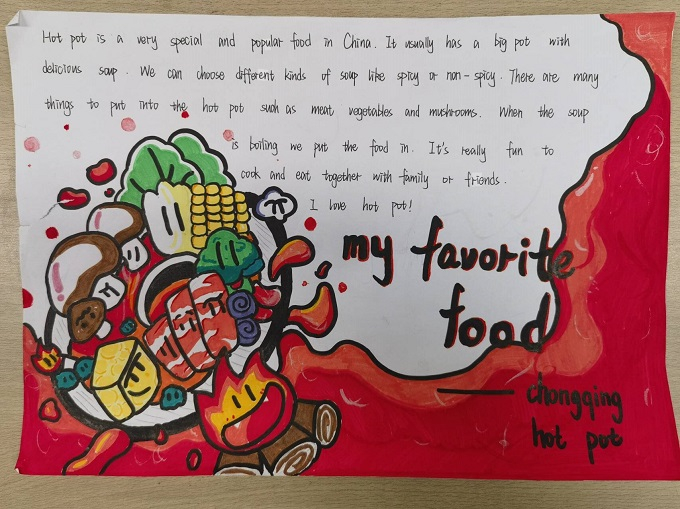 Hot pot is a very special and popular food in China. It usually has a big pot with
delicious soup. We can choose different kinds of soup like spicy or non-spicy. There are many
things to put into the hot pot such as meat, vegetables and mushrooms. When the soup
is boiling we put the food in. It's really fun to
cook and eat together with family or friends.
I love hot pot!
my favorite
food
— chongqing
hot pot